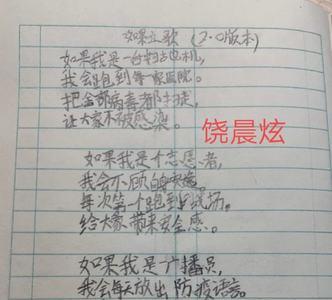 如果之歌（2.0版本）
如果我是一台扫描机，
我会跑到每一家医院。
把全部病毒都扫走，
让大家不被感染。
饶晨炫
如果我是个志愿者，
我会不顾自的安危。
每次第一个跑到现场。
给大家带来安全感。
如果我是广播员，
我会每天放出防疫语言。